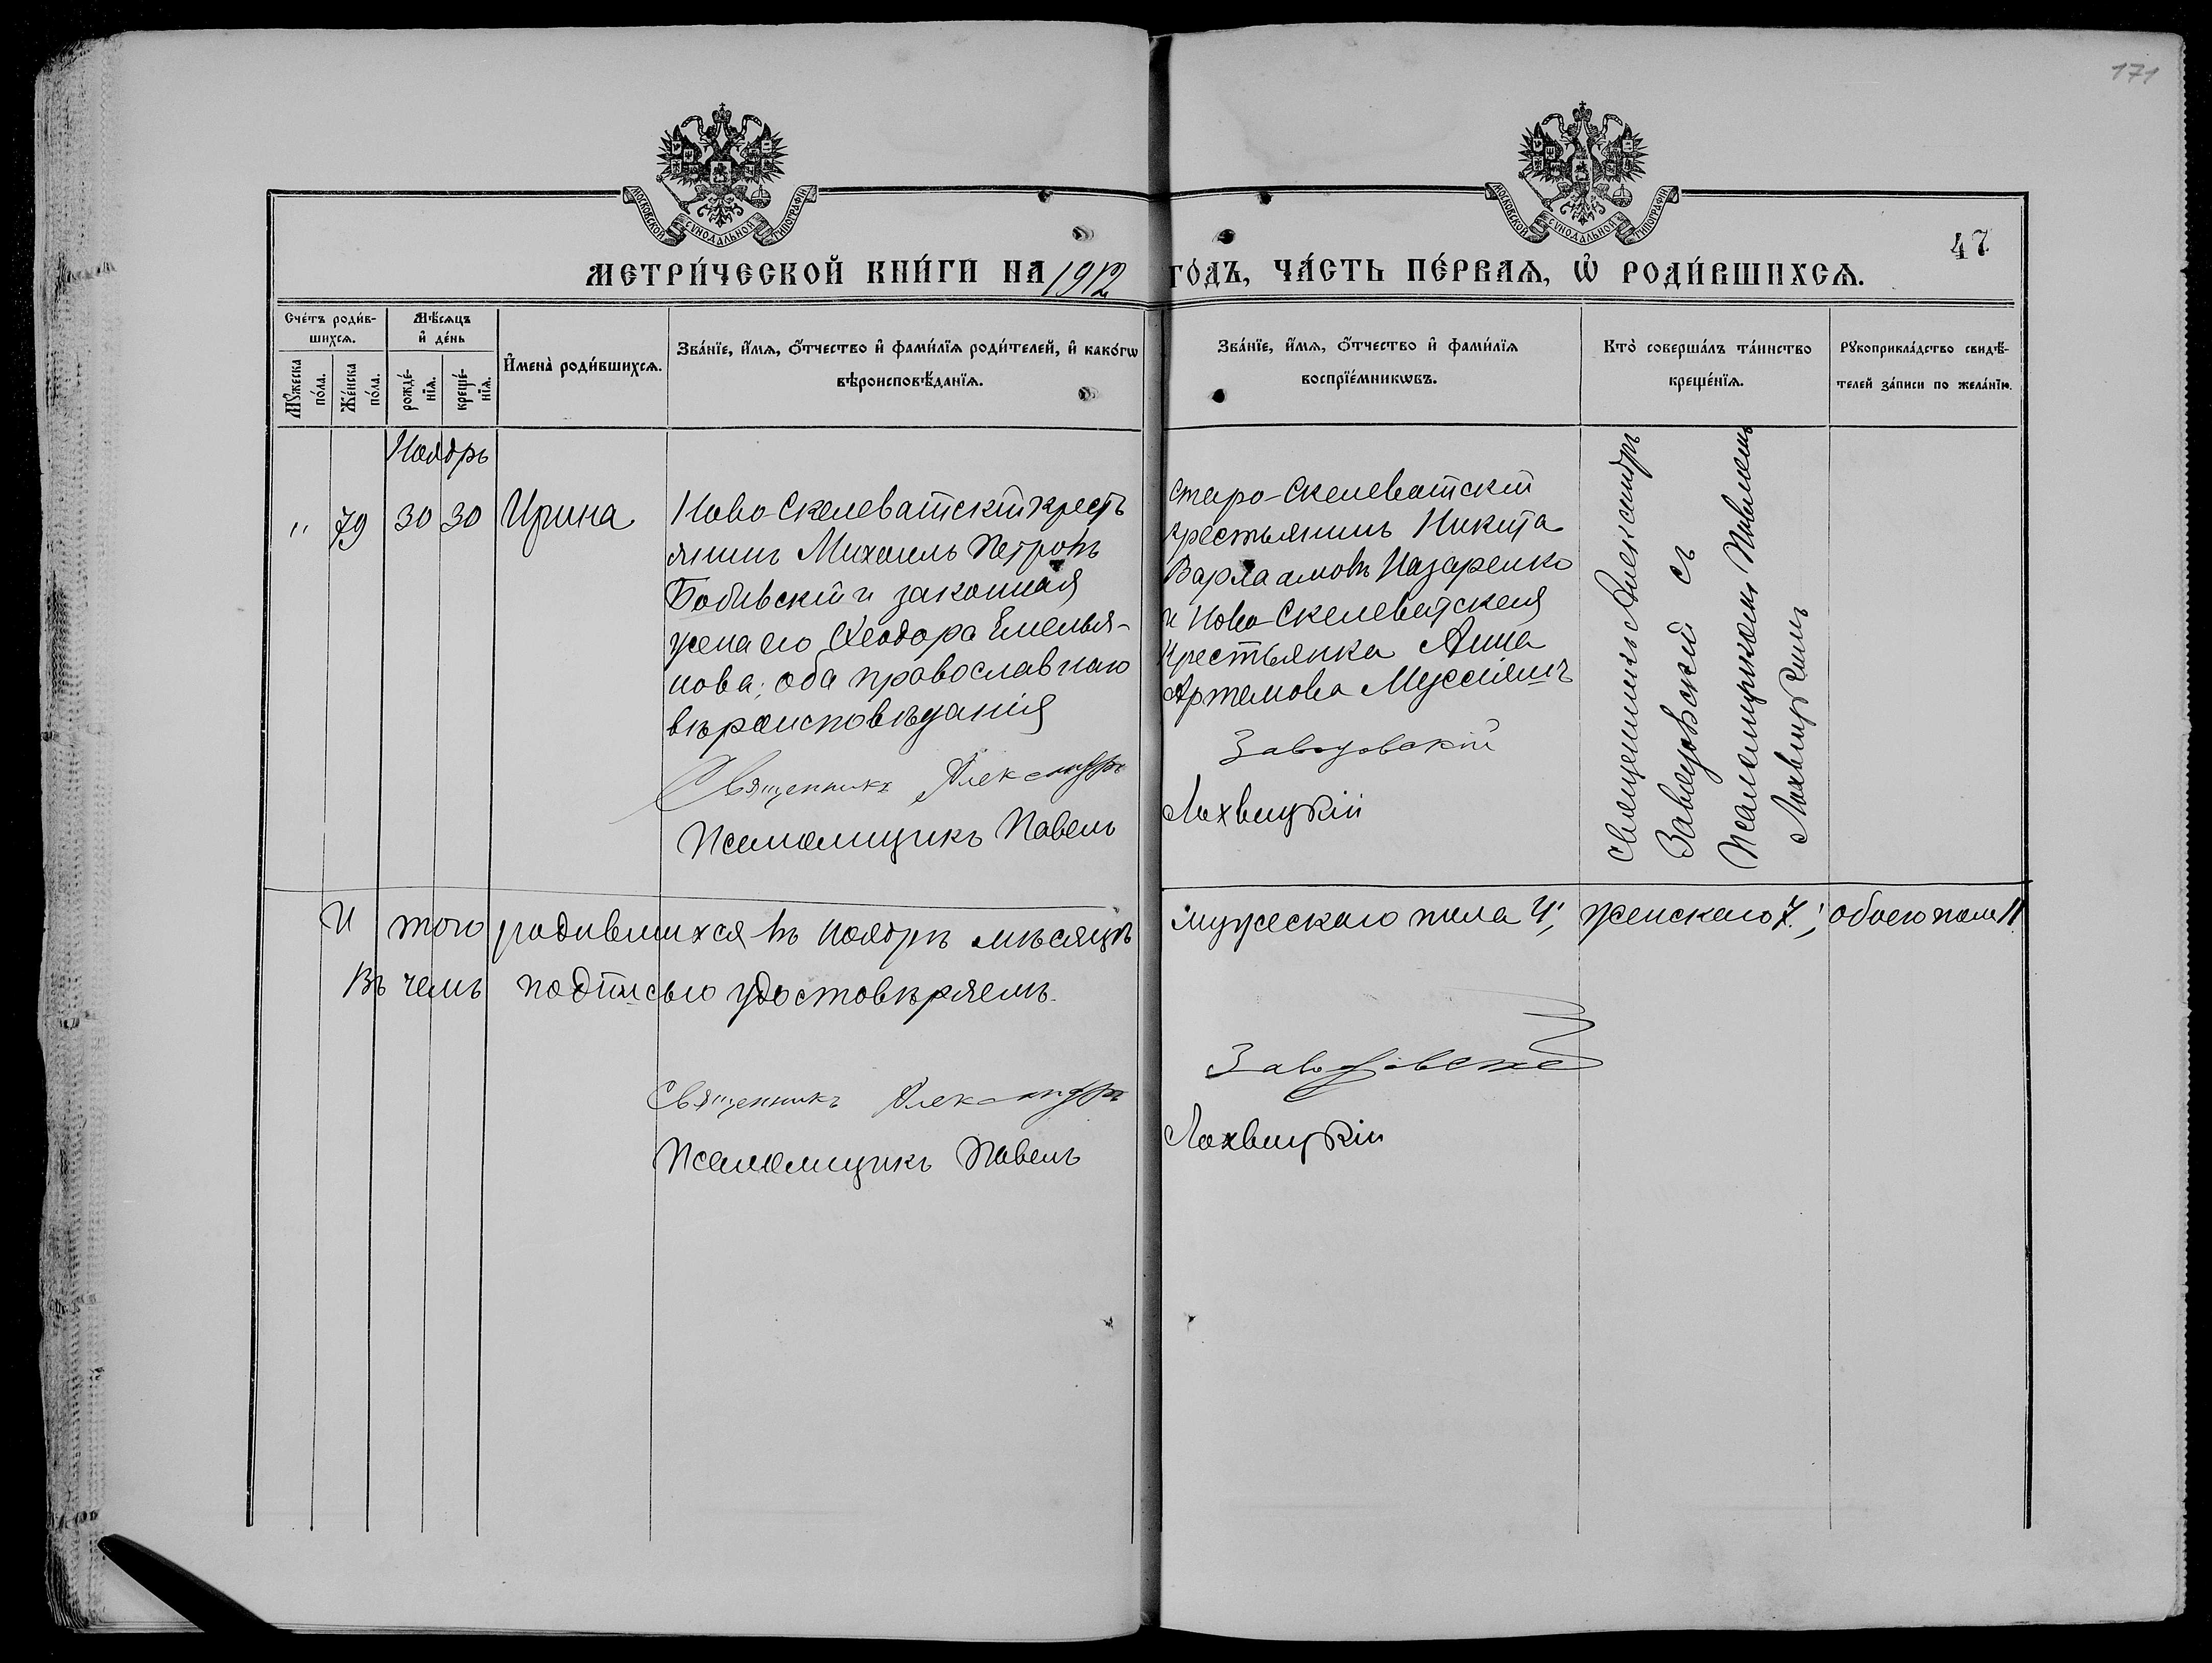 171
МОСКОВСКОЙ СѴНОДАЛЬНОЙ ТИПОГРАФІИ
МОСКОВСКОЙ СѴНОДАЛЬНОЙ ТИПОГРАФІИ
47
МЕТРИ́ЧЕСКОЙ КНИ́ГИ НА 1912 ГО́ДЪ, ЧА́СТЬ ПЕ́РВАЯ, Ѽ РОДИ́ВШИХСЯ.
Сче́тъ роди́в-
шихся.
Мѣ́сяцъ
и де́нь
Мꙋ́жеска
по́ла.
Же́нска
по́ла.
рожде́-
нїя.
креще́-
нїя.
Имена̀ роди́вшихся.
Зва́нїе, и́мя, о́тчество и фами́лїя роди́телей, и како́гѡ
вѣроисповѣ́данїя.
Зва́нїе, и́мя, о́тчество и фами́лїя
воспрїе́мникѡвъ.
Кто̀ соверша́лъ та́инство
креще́нїя.
Рꙋкоприкла́дство свидѣ́-
телей за́писи по жела́нїю.
Ноябрь
" 79 30 30 Ирина
Ново-Скелеватскій кресть
янинъ Михаилъ Петровъ
Бобивскій и законная
жена его Ѳеодора Емелья-
нова; оба православнаго
вѣроисповѣданія
Священникъ Александръ
Псаломщикъ Павелъ
Старо-Скелеватскій
крестьянинъ Никита
Варлаамовъ Назаренко
и Ново-Скелеватская
крестьянка Анна
Артемова
Заводовскій
Лохвицкій
Священникъ Александръ
Заводовскій съ
Псаломщикомъ Павломъ
Лохвицкимъ
И того родившихся въ Ноябрѣ мѣсяцѣ мужескаго пола 4, женскаго 7, обоего пола 11
Въ чемъ подписью удостовѣряемъ.
Священникъ Александръ Заводовскій
Псаломщикъ Павелъ Лохвицкій